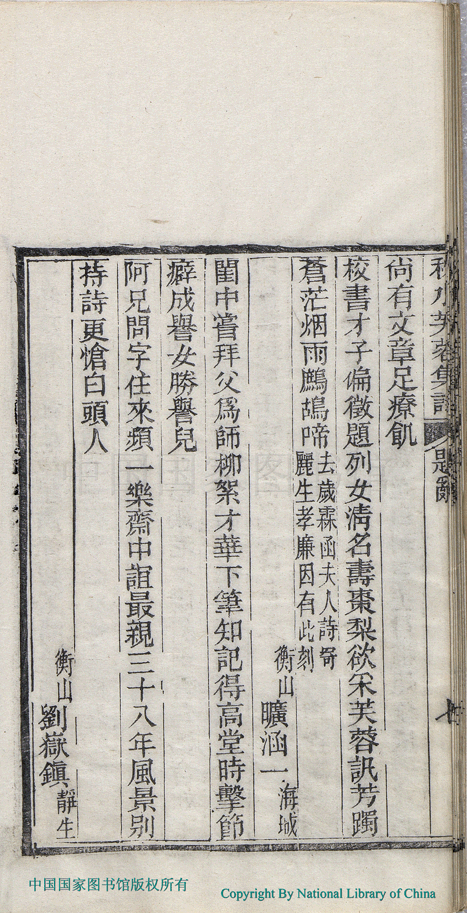 芙蓉集
題辭
尚有文章足療飢
校書才子偏徵題列女清名壽棗梨欲采芙蓉訊芳躅
蒼茫烟雨鷓鴣啼
去歲霖函夫人詩寄
麗生孝廉因有此刻
衡山曠涵一海城
閨中嘗拜父爲師柳絮才華下筆知記得高堂時擊節
癖成譽女勝譽兒
阿兄問字往來頻一樂齋中誼最親三十八年風景別
持詩更愴白頭人
衡山劉嶽鎮靜生
中国国家图书馆版权所有
Copyright By National Library of China